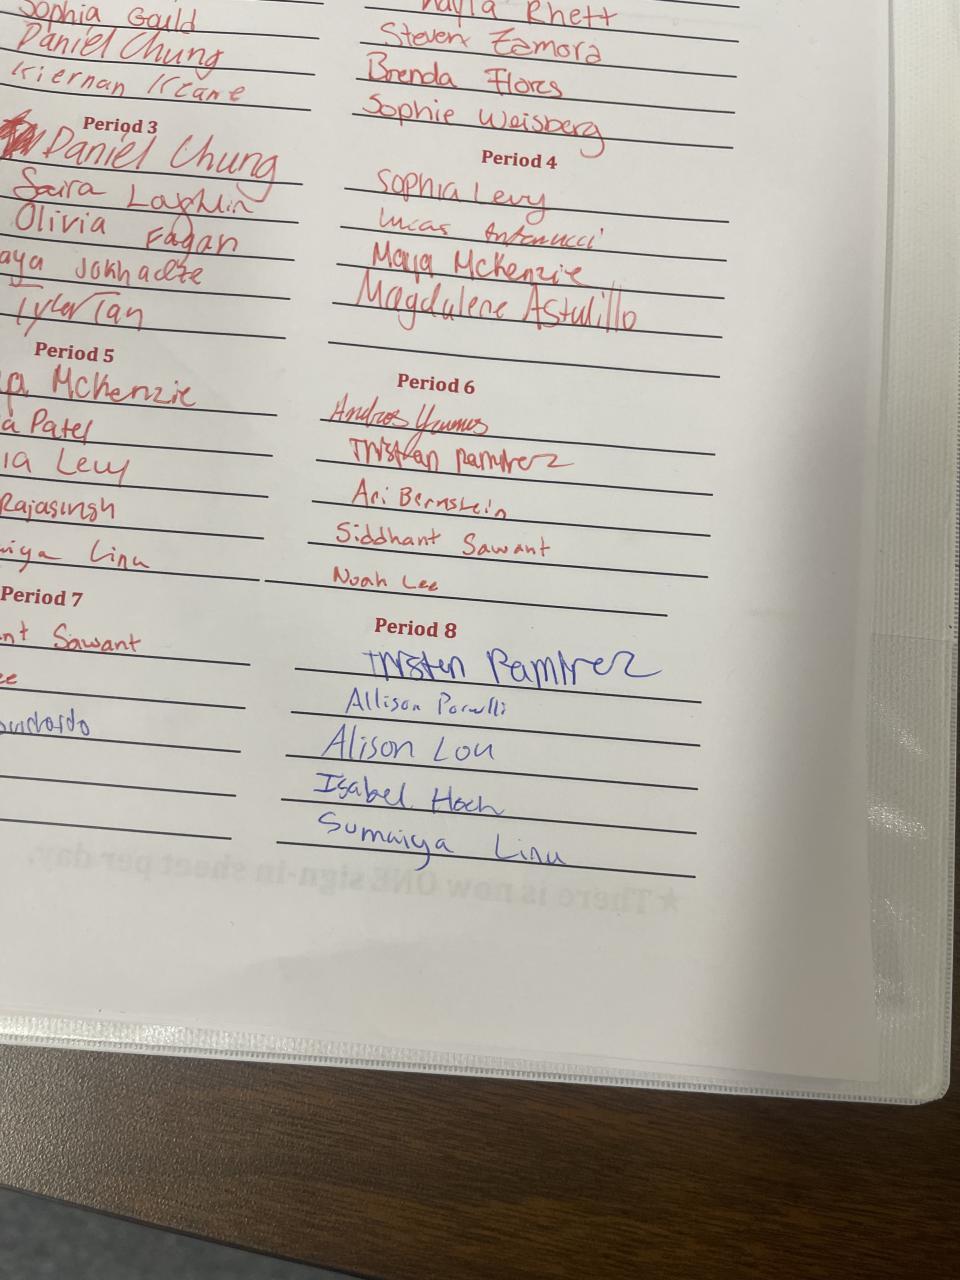 Sophia Gould
Daniel Chung
Kiernan Kcane
Rhett
Steven Zamora
Brenda Flores
Sophie Weisberg
Period 3
Daniel Chung
Saira
Olivia Fagan
aya Jokhadze
Tyler Tan
Period 4
Sophia Levy
Lucas Antonucci
Maya McKenzie
Magdalene Astulillo
Period 5
McKenzie
a Patel
ia Levy
Rajasingh
aiya Linu
Period 6
Andros Younus
Tristan Ramirez
Ari Bernstein
Siddhant Sawant
Noah Lee
Period 7
nt Sawant
ee
Period 8
Tristen Ramirez
Allison
Alison Lou
Isabel Hoch
Sumaiya Linu
★There is now ONE sign-in sheet per day.